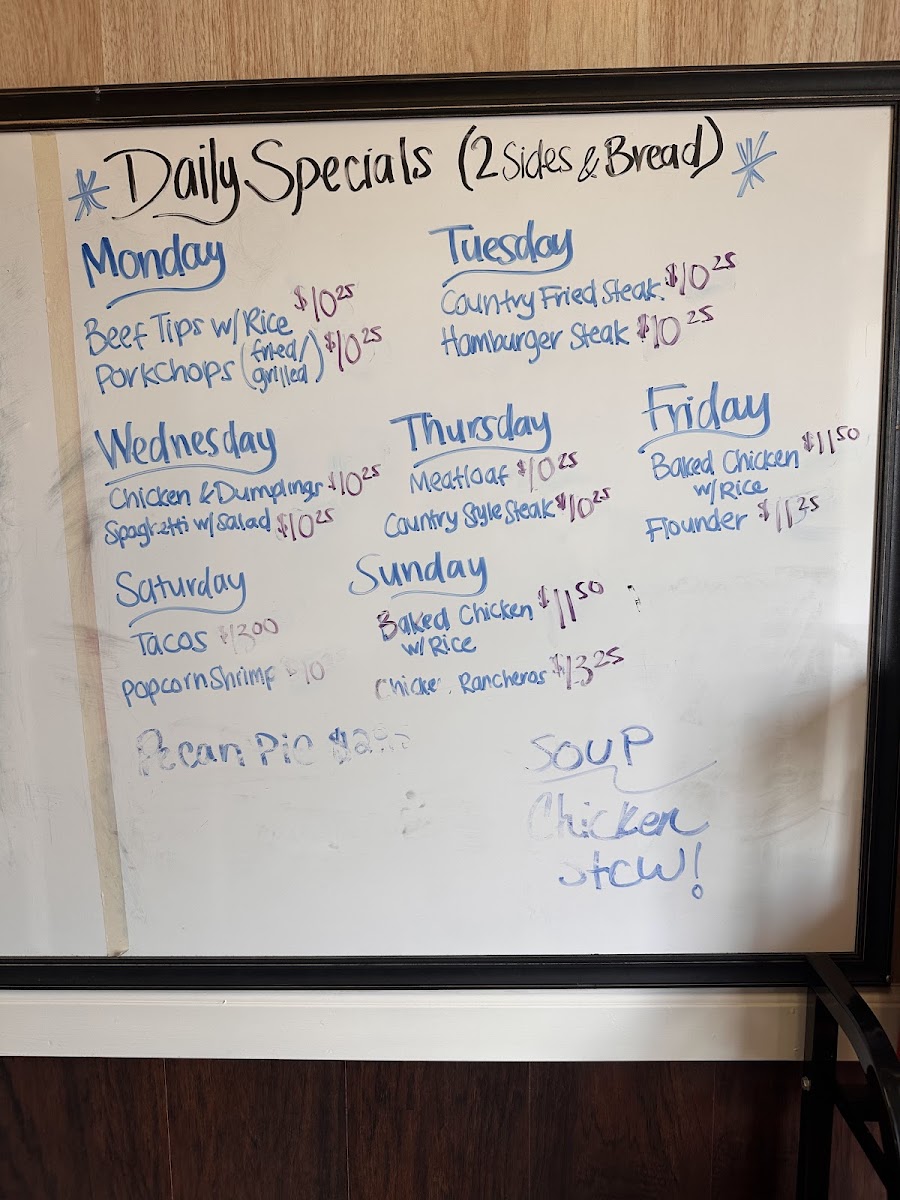 * Daily Specials (2 Sides & Bread) *
Monday
Beef Tips w/Rice $10.25
Porkchops (fried/grilled) $10.25
Tuesday
Country Fried Steak $10.25
Hamburger Steak $10.25
Wednesday
Chicken & Dumplings $10.25
Spaghetti w/Salad $10.25
Thursday
Meatloaf $10.25
Country Style Steak $10.25
Friday
Baked Chicken $11.50
w/Rice
Flounder $11.25
Saturday
Tacos $13.00
Popcorn Shrimp $10
Sunday
Baked Chicken $11.50
w/Rice
Chicke Rancheros $13.25
Pecan Pie
Soup
Chicken
Stew!